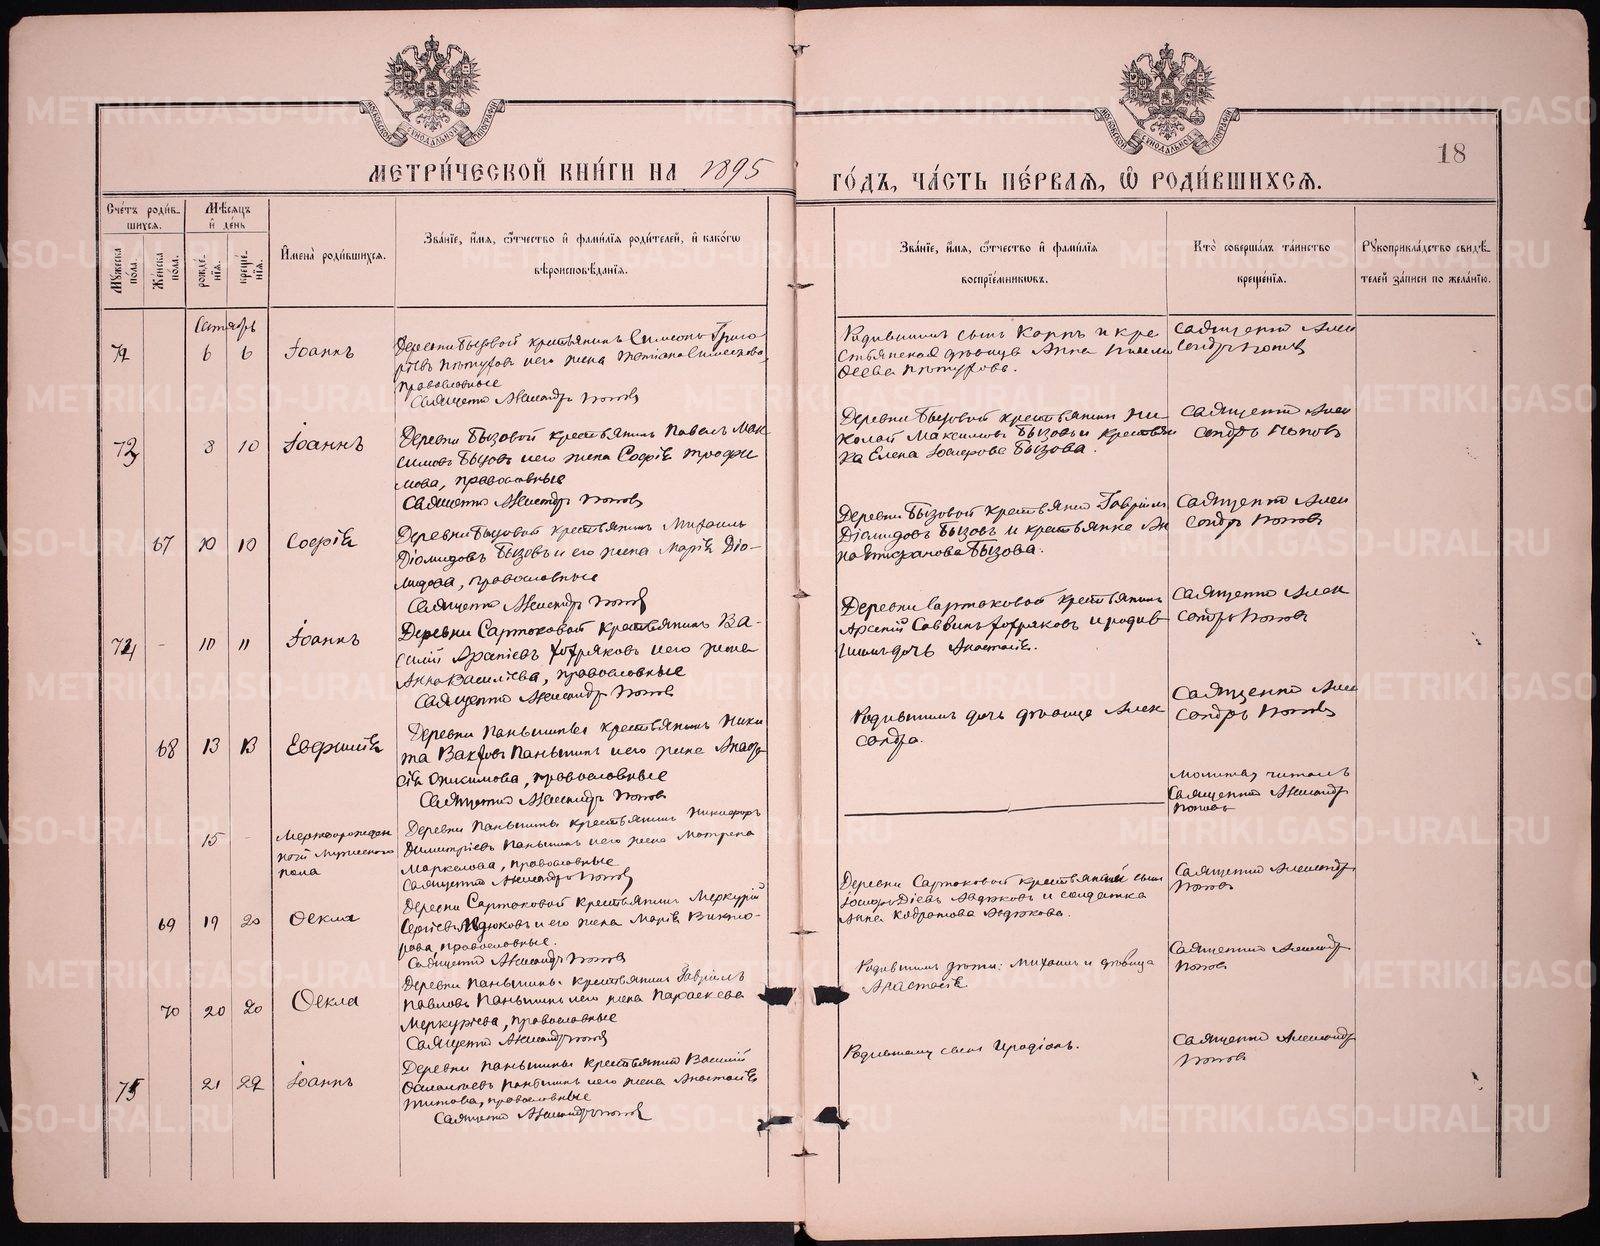 МОСКОВСКОЙ СѴНОДАЛЬНОЙ ТИПОГРАФІИ
МОСКОВСКОЙ СѴНОДАЛЬНОЙ ТИПОГРАФІИ
18
МЕТРИ́ЧЕСКОЙ КНИ́ГИ НА 1895
ГО́ДЪ, ЧА́СТЬ ПЕ́РВАѦ, Ѡ҆ РОДИ́ВШИХСѦ.
Сче́тъ роди́в-
шихсѧ.
Мѣ́сѧцъ
и҆ де́нь
Мꙋ́жеска по́ла.
Же́нска по́ла.
рожде́-
нїѧ.
креще́-
нїѧ.
И҆мена̀ роди́вшихсѧ.
Зва́нїе, и҆́мѧ, ѻ҆́тчество и҆ фами́лїѧ роди́телей, и҆ како́гѡ
вѣроисповѣ́данїѧ.
Зва́нїе, и҆́мѧ, ѻ҆́тчество и҆ фами́лїѧ
воспрїе́мникѡвъ.
Кто̀ соверша́лъ та́инство
креще́нїѧ.
Рꙋкоприкла́дство свидѣ́-
телей за́писи по жела́нїю.
Сентябрь
72 6 6 Іоаннъ
Деревни Бызовой крестьянинъ Симеонъ Григо
рьевъ Пѣтуховъ и его жена Татіана Симеонова,
православные
Священникъ Александръ Поповъ
Родившимъ сынъ Карпъ и кре
стьянская дѣвица Анна
Пѣтухова.
Священникъ Алек
сандръ Поповъ
73 8 10 Іоаннъ
Деревни Бызовой крестьянинъ Павелъ Мак
симовъ Бызовъ и его жена Софія Трофи
мова, православные
Священникъ Александръ Поповъ
Деревни Бызовой крестьянинъ Ни
колай Максимовъ Бызовъ и крестьян
ка Елена Бызова.
Священникъ Алек
сандръ Поповъ
67 10 10 Софія
Деревни Бызовой крестьянинъ Михаилъ
Діомидовъ Бызовъ и его жена Марія Діо-
мидова, православные
Священникъ Александръ Поповъ
Деревни Бызовой крестьянинъ Гавріилъ
Діомидовъ Бызовъ и крестьянка Ан
на Бызова.
Священникъ Алек
сандръ Поповъ
74 - 10 11 Іоаннъ
Деревни Сартаковой крестьянинъ Ва-
силій Арсеніевъ и его жена
Анна Василіева, православные
Священникъ Александръ Поповъ
Деревни Сартаковой крестьянинъ
Арсеній Саввинъ и родив
шимъ дочь Анастасія.
Священникъ Алек
сандръ Поповъ
68 13 13 Евфимія
Деревни Паньшины крестьянинъ Ники
та Паньшинъ и его жена Анаста
сія Онисимова, православные
Священникъ Александръ Поповъ
Родившимъ дочь дѣвица Алек
сандра.
Священникъ Алек
сандръ Поповъ
15 - Мертворожден
ный мужескаго
пола
Деревни Паньшины крестьянинъ Никифоръ
Димитріевъ Паньшинъ и его жена Матрена
Маркелова, православные
Священникъ Александръ Поповъ
Молитву читалъ
Священникъ Александръ
Поповъ
69 19 20 Ѳекла
Деревни Сартаковой крестьянинъ Меркурій
Сергіевъ Авдюковъ и его жена Марія Викто-
рова, православные.
Священникъ Александръ Поповъ
Деревни Сартаковой крестьянскій сынъ
Авдюковъ и солдатка
Анна Авдюкова.
Священникъ Александръ
Поповъ
70 20 20 Ѳекла
Деревни Паньшины крестьянинъ Гавріилъ
Павловъ Паньшинъ и его жена Параскева
Меркуріева, православные
Священникъ Александръ Поповъ
Родившимъ дѣти: Михаилъ и дѣвица
Анастасія
Священникъ Александръ
Поповъ
75 21 22 Іоаннъ
Деревни Паньшины крестьянинъ Василій
Паньшинъ и его жена Анастасія
Титова, православные
Священникъ Александръ Поповъ
Родившему сынъ Иродіонъ.
Священникъ Александръ
Поповъ
METRIKI.GASO-URAL.RU